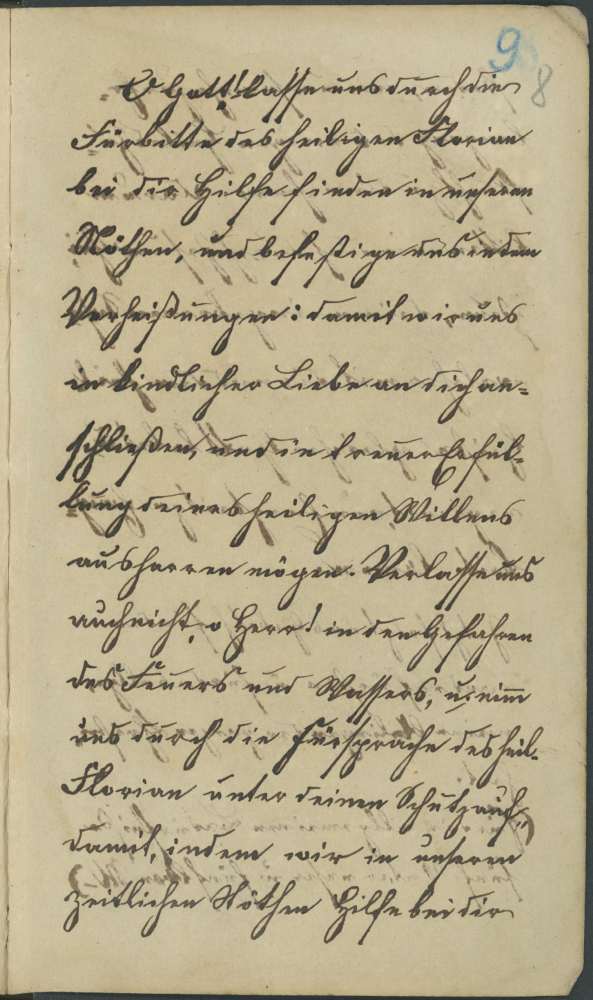 9
8
O Gott! lasse uns durch die
Fürbitte des heiligen Florian
bei dir Hilfe finden in unseren
Nöthen, und befestige uns in dem
Verheißungen: damit wir uns
in kindlicher Liebe an dich an=
schließen, und in treuer Erfül=
lung deines heiligen Willens
ausharren mögen. Verlasse uns
auch nicht, o Herr! in den Gefahren
des Feuers und Wassers, u. nimm
uns durch die Fürsprache des heil.
Florian unter deinen Schutz auf,
damit, indem wir in unseren
zeitlichen Nöthen Hilfe bei dir